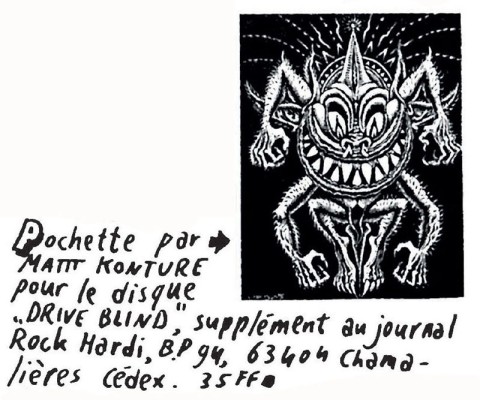 Pochette par
MATTT KONTURE
pour le disque
„DRIVE BLIND", supplément au journal
Rock Hardi, B.P 94, 63404 Chama-
lières Cédex. 35FF